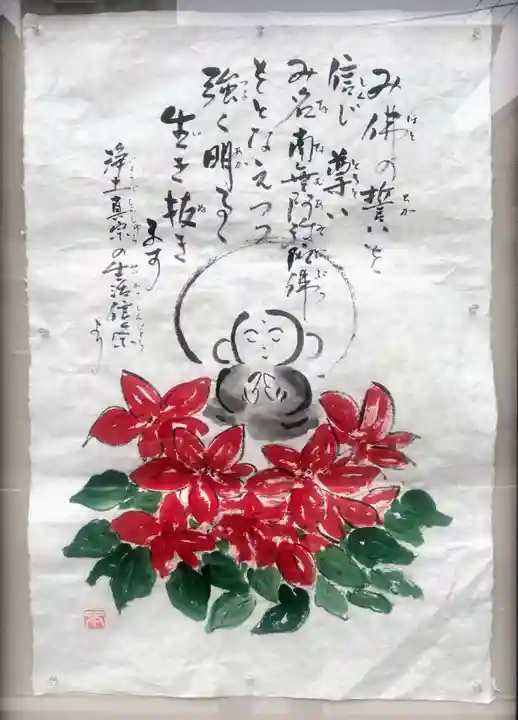 み佛の誓いを
信じ 尊い
み名 南無阿弥陀佛
をとなえつつ
強く明るく
生き抜き
ます
浄土真宗の生活信条
より